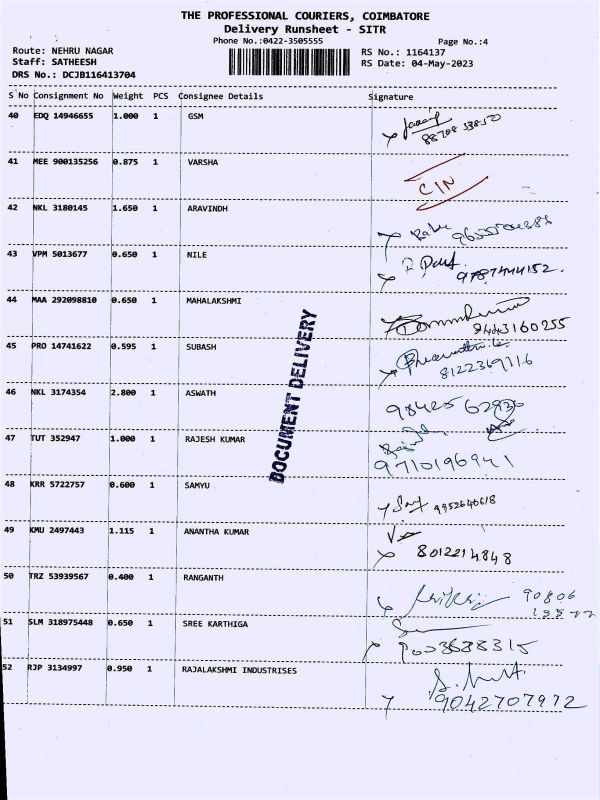 THE PROFESSIONAL COURIERS, COIMBATORE
Delivery Runsheet - SITR
Phone No.:0422-3505555 Page No.:4
Route: NEHRU NAGAR RS No.: 1164137
Staff: SATHEESH RS Date: 04-May-2023
DRS No.: DCJB116413704
S No Consignment No Weight PCS Consignee Details Signature
40 EDQ 14946655 1.000 1 GSM
41 MEE 900135256 0.875 1 VARSHA
CIN
42 NKL 3180145 1.650 1 ARAVINDH
43 VPM 5013677 0.650 1 NILE
9787444152.
44 MAA 292098810 0.650 1 MAHALAKSHMI
9443160255
45 PRO 14741622 0.595 1 SUBASH
8122369116
46 NKL 3174354 2.800 1 ASWATH
98425 62936
47 TUT 352947 1.000 1 RAJESH KUMAR
9710196941
48 KRR 5722757 0.600 1 SAMYU
9952640618
49 KMU 2497443 1.115 1 ANANTHA KUMAR
8012214848
50 TRZ 53939567 0.400 1 RANGANTH
90806
51 SLM 318975448 0.650 1 SREE KARTHIGA
9003638315
52 RJP 3134997 0.950 1 RAJALAKSHMI INDUSTRISES
9042707972
DOCUMENT DELIVERY